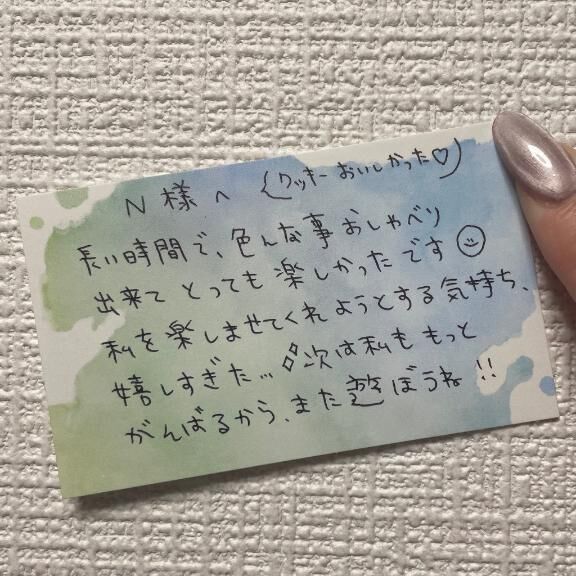 N様へ (クッキーおいしかった♡)
長い時間で、色んな事おしゃべり
出来てとっても楽しかったです☺
私を楽しませてくれようとする気持ち、
嬉しすぎた…✧次は私ももっと
がんばるから、また遊ぼうね!!